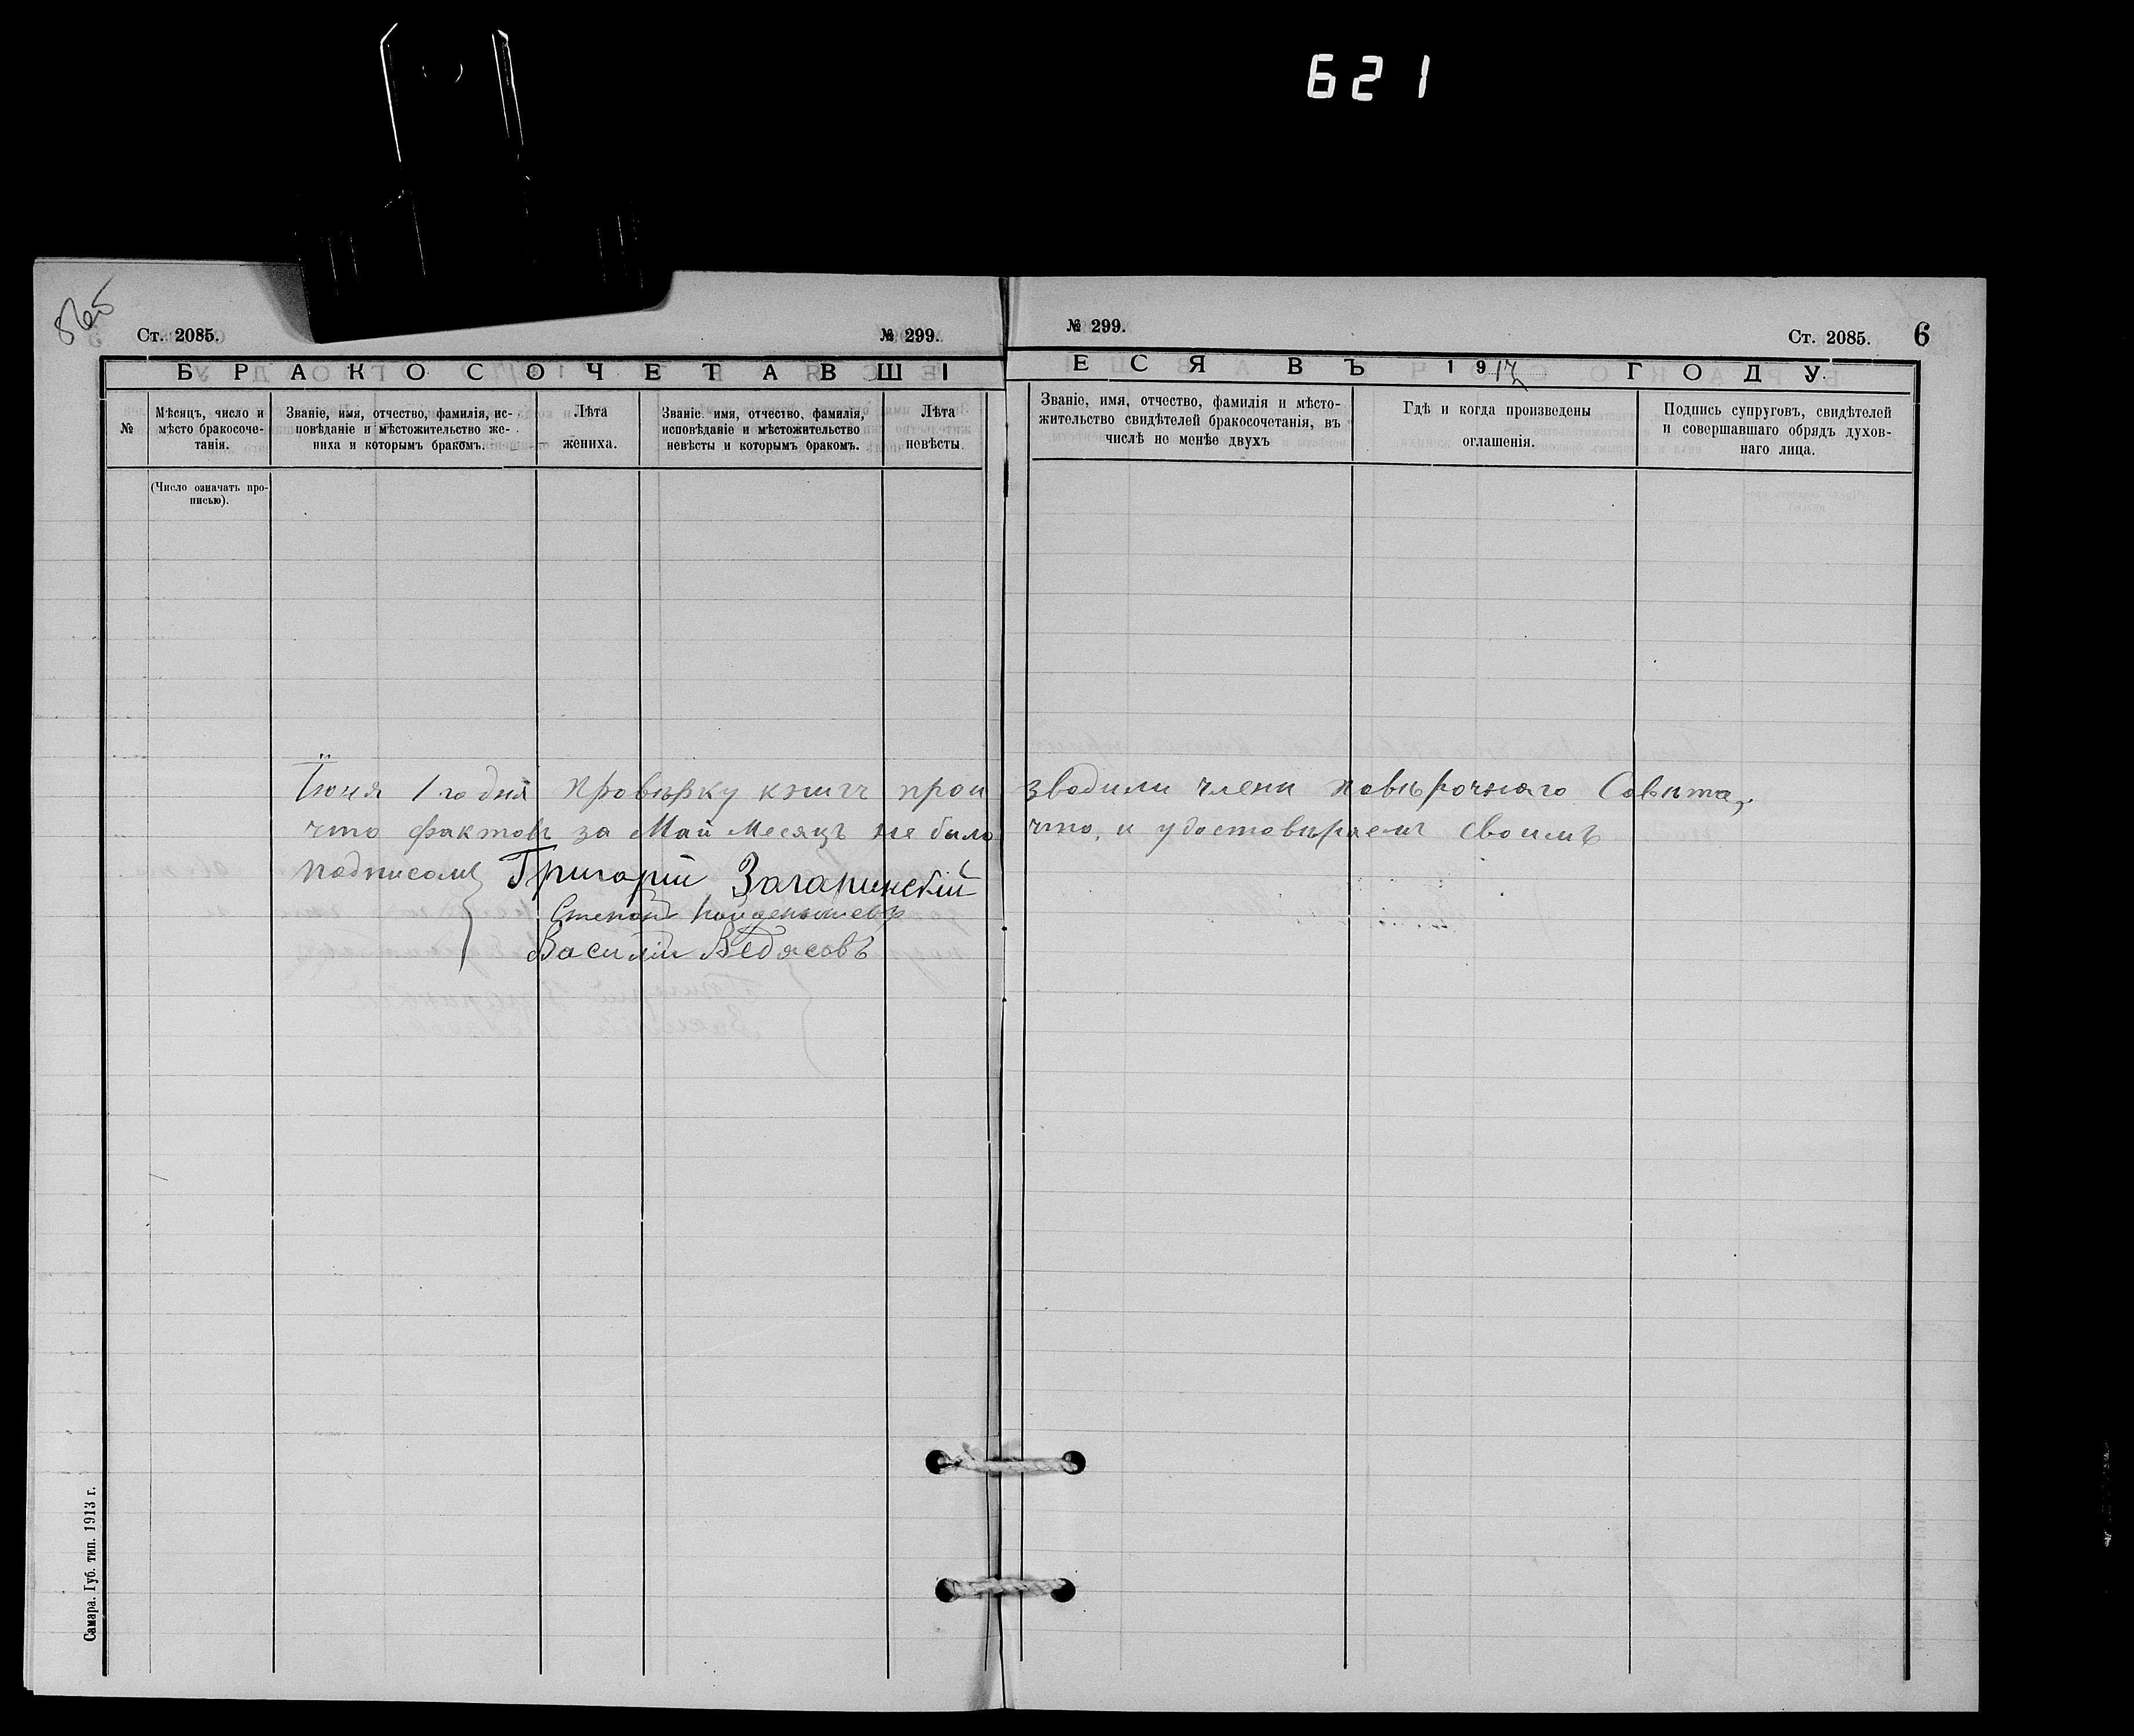 621
Ст. 2085.
№ 299.
№ 299.
Ст. 2085.
6
БРАКОСОЧЕТАВШІЕСЯ ВЪ 1917 ГОДУ.
№
Мѣсяцъ, число и
мѣсто бракосоче-
танія.
Званіе, имя, отчество, фамилія, ис-
повѣданіе и мѣстожительство же-
ниха и которымъ бракомъ.
Лѣта
жениха.
Званіе, имя, отчество, фамилія,
исповѣданіе и мѣстожительство
невѣсты и которымъ бракомъ.
Лѣта
невѣсты.
Званіе, имя, отчество, фамилія и мѣсто-
жительство свидѣтелей бракосочетанія, въ
числѣ не менѣе двухъ
Гдѣ и когда произведены
оглашенія.
Подпись супруговъ, свидѣтелей
и совершавшаго обрядъ духов-
наго лица.
(Число означать про-
писью).
Іюня 1 го дня провѣрку книгъ прои зводили члены повѣрочнаго Совѣта,
что фактовъ за Май месяцъ не было что, и удостовѣряемъ своимъ
подписомъ Григорій Загаринскій
Степан
Василій Ведясовъ
Самара. Губ. тип. 1913 г.